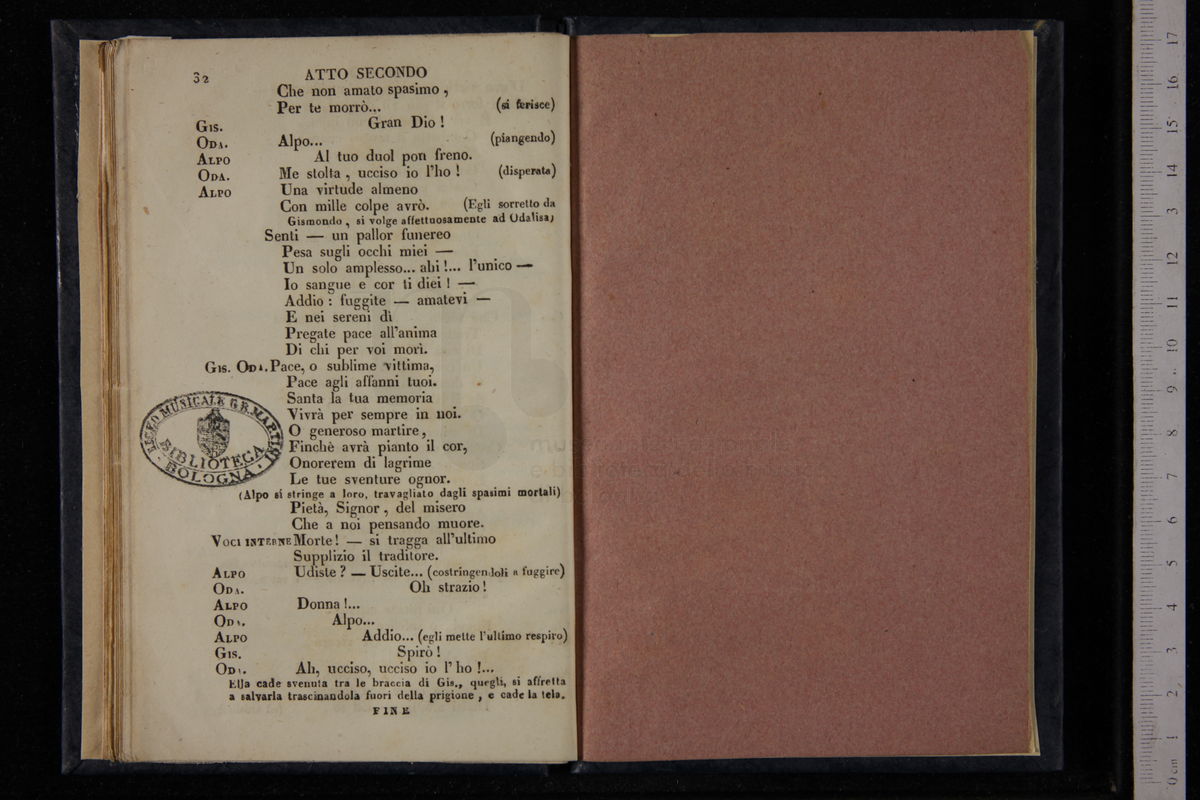 32 ATTO SECONDO
Che non amato spasimo ,
Per te morrò... (si ferisce)
Gis. Gran Dio !
Oda. Alpo... (piangendo)
Alpo Al tuo duol pon freno.
Oda. Me stolta , ucciso io l'ho ! (disperata)
Alpo Una virtude almeno
Con mille colpe avrò. (Egli sorretto da
Gismondo , si volge affettuosamente ad Odalisa)
Senti — un pallor funereo
Pesa sugli occhi miei —
Un solo amplesso... ahi !... l'unico —
Io sangue e cor ti diei ! —
Addio : fuggite — amatevi —
E nei sereni dì
Pregate pace all'anima
Di chi per voi morì.
Gis. Oda. Pace, o sublime vittima,
Pace agli affanni tuoi.
Santa la tua memoria
Vivrà per sempre in noi.
O generoso martire,
Finchè avrà pianto il cor,
Onorerem di lagrime
Le tue sventure ognor.
(Alpo si stringe a loro, travagliato dagli spasimi mortali)
Pietà, Signor , del misero
Che a noi pensando muore.
Voci interne Morte ! — si tragga all'ultimo
Supplizio il traditore.
Alpo Udiste ? — Uscite... (costringendoli a fuggire)
Oda. Oh strazio !
Alpo Donna !...
Oda. Alpo...
Alpo Addio... (egli mette l'ultimo respiro)
Gis. Spirò !
Oda. Ah, ucciso, ucciso io l'ho !...
Ella cade svenuta tra le braccia di Gis., quegli, si affretta
a salvarla trascinandola fuori della prigione , e cade la tela.
FINE
LICEO MUSICALE G. B. MARTINI
BIBLIOTECA
BOLOGNA
0 cm 1 2 3 4 5 6 7 8 9 10 11 12 3 14 15 16 17